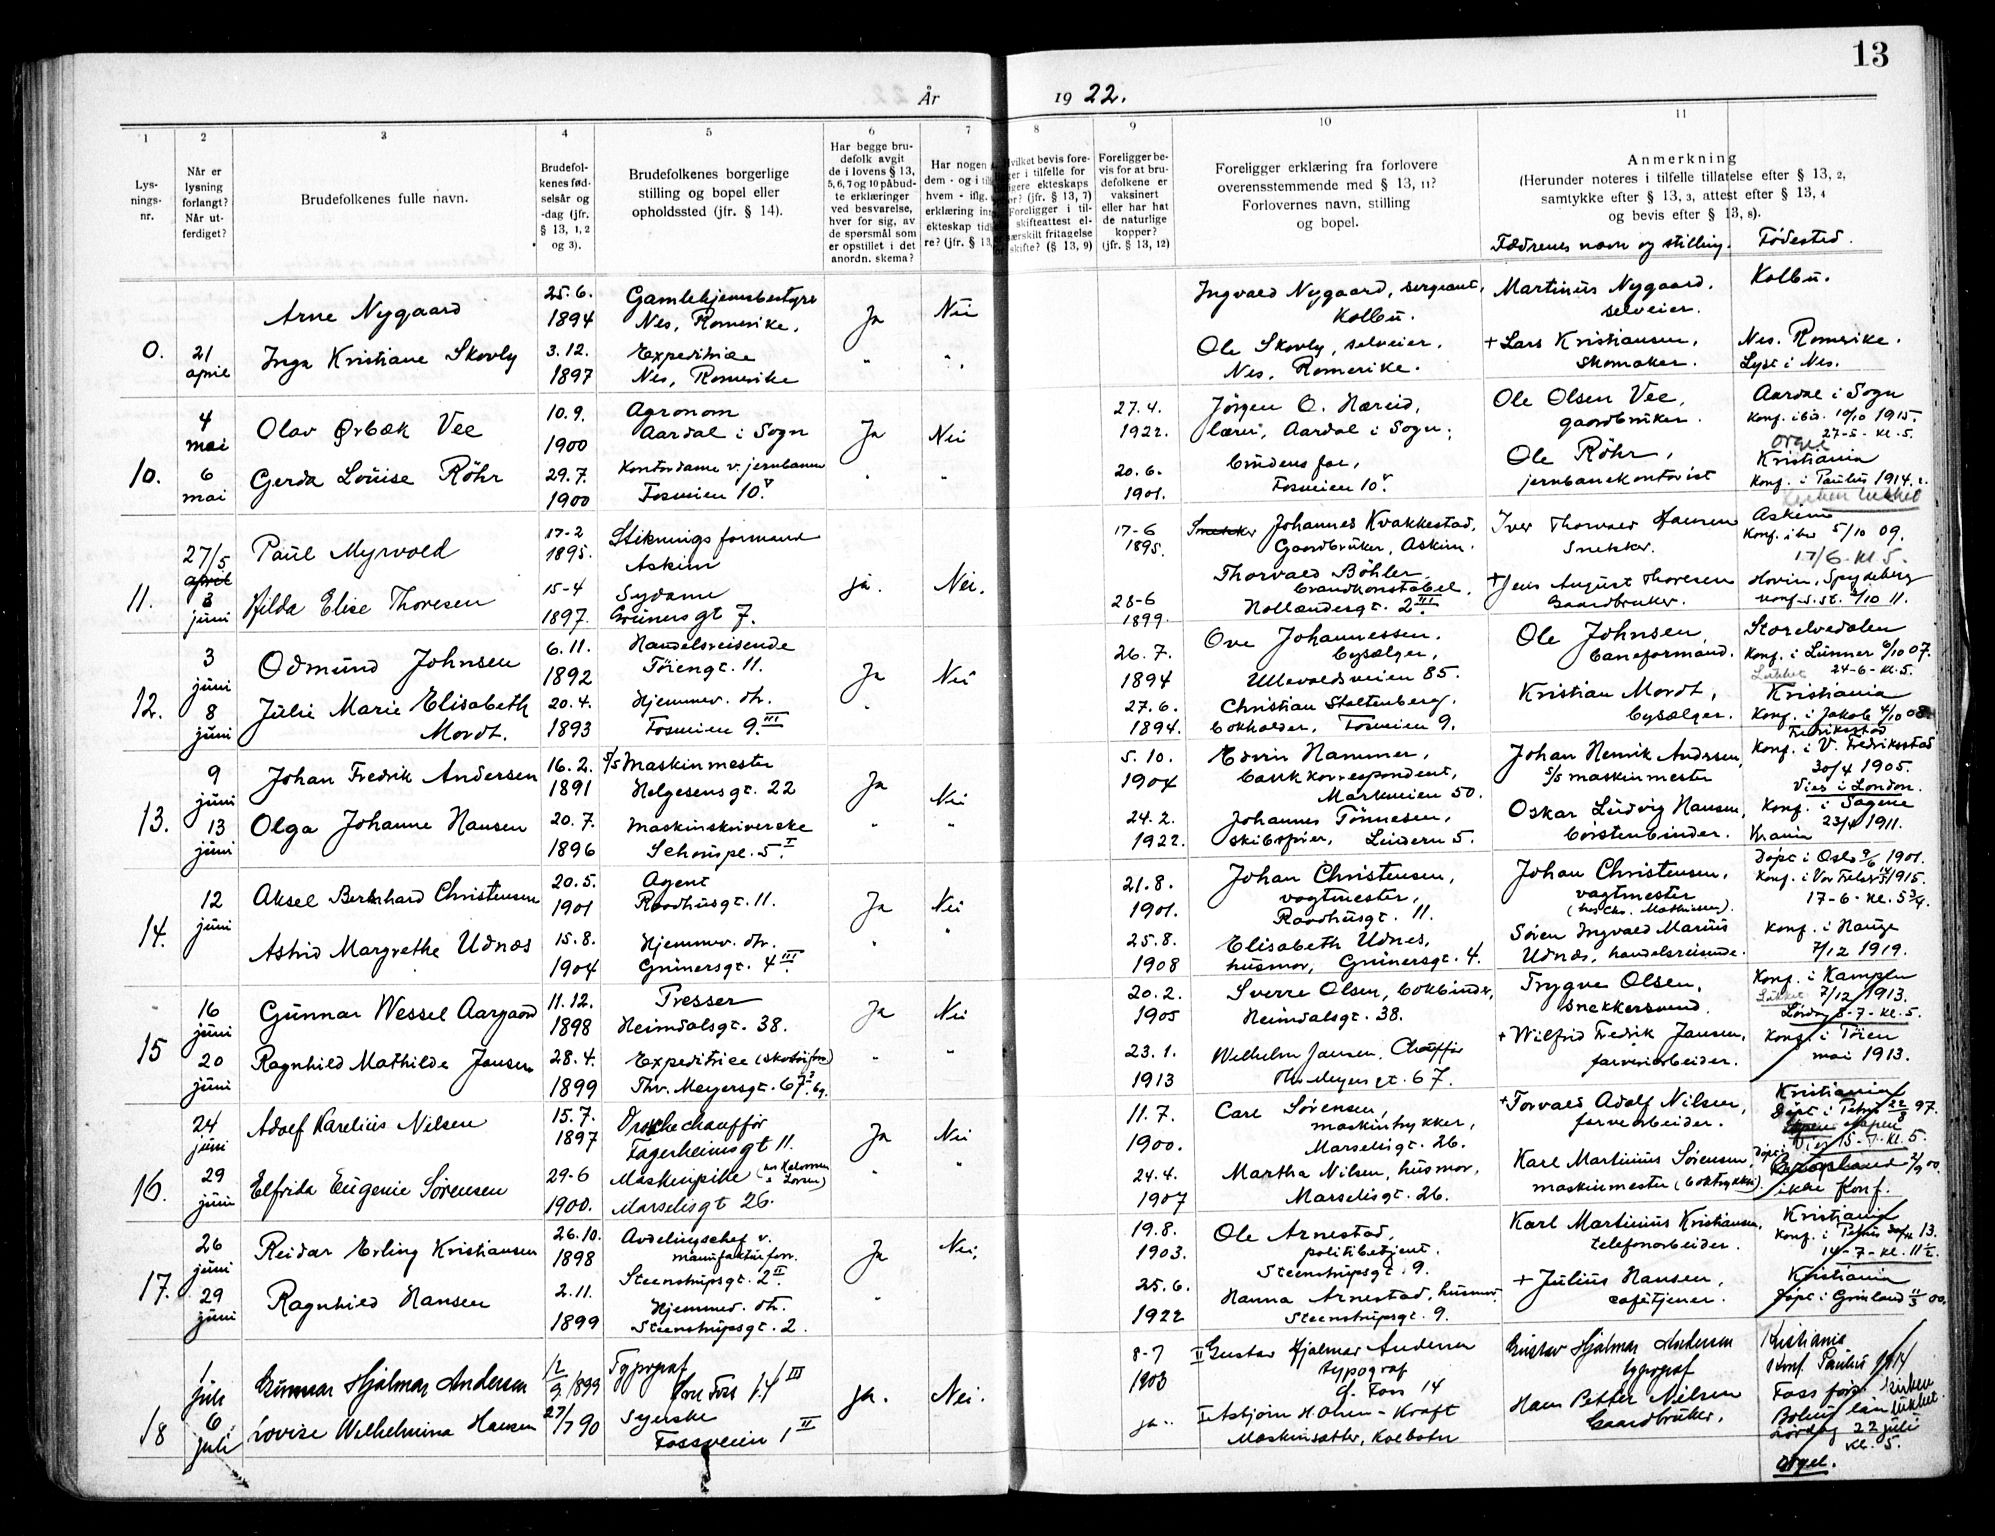 13
År 1922.
1 2 3 4 5 6 7 8 9 10 11
Lys-
nings-
nr.
Når er
lysning
forlangt?
Når ut-
ferdiget?
Brudefolkenes fulle navn.
Brudefol-
kenes fød-
selsår og
-dag (jfr.
§ 13, 1, 2
og 3).
Brudefolkenes borgerlige
stilling og bopel eller
opholdssted (jfr. § 14).
Har begge bru-
defolk avgit
de i lovens § 13,
5, 6, 7 og 10 påbud-
te erklæringer
ved besvarelse,
hver for sig, av
de spørsmål som
er opstillet i det
anordn. skema?
Har nogen
dem - og i
hvem - iflg.
erklæring
ekteskap
re? (jfr. § 13,
hvilket bevis fore-
i tilfelle for
ekteskaps
? (jfr. § 13, 7)
Foreligger i til-
skifteattest el-
særskilt fritagelse
skifte? (§ 13, 9)
Foreligger be-
vis for at bru-
defolkene er
vaksinert
eller har hat
de naturlige
kopper?
(jfr. § 13, 12)
Foreligger erklæring fra forlovere
overensstemmende med § 13, 11?
Forlovernes navn, stilling
og bopel.
Anmerkning
(Herunder noteres i tilfelle tillatelse efter § 13, 2,
samtykke efter § 13, 3, attest efter § 13, 4
og bevis efter § 13, 8).
Fædrenes navn og stilling. Fødested.
0.
21
april
Arne Nygaard
25.6.
1894
Gamlehjemsbestyrer
Nes, Romerike.
Ja Nei
Ingvald Nygaard, sergeant,
Kolbu.
Martinus Nygaard,
selveier.
Kolbu.
Inga Kristiane Skovly
3.12.
1897
Expeditrice
Nes, Romerike
" "
Ole Skovly, selveier,
Nes, Romerike.
+ Lars Kristiansen,
skomaker.
Nes. Romerike.
Lyst i Nes.
10.
4
mai
6
mai
Olav Ørbæk Vee
10.9.
1900
Agronom
Aardal i Sogn
Ja Nei
27.4.
1922.
Jørgen O. Hæreid,
lærer, Aardal i Sogn.
Ole Olsen Vee,
gaardbruker.
Aardal i Sogn
Konf. ibid. 10/10 1915.
27-5- kl. 5.
Orgel
Gerda Louise Röhr
29.7.
1900
Kontordame v. jernbanen
Fosveien 10 V
" "
20.6.
1901.
brudens far,
Fosveien 10 V
Ole Röhr,
jernbanekontorist
Kristiania
Konf. i Paulus 1914.
11.
27/5
april
3
juni
Paul Myrvold
17-2
1895.
Stiknings formand
Askim
ja. Nei.
17-6
1895.
Snekker Johannes Kvakkestad,
Gaardbruker, Askim.
Iver Thorvald Hansen
Snekker.
Askim
Konf. ibid 5/10 09.
17/6 - kl 5.
Hilda Elise Thoresen
15-4
1897.
Sydame
Grünersgt 7.
28-6
1899.
Thorvald Böhler
brandkonstabel.
Hollændergt. 2 III
+ Jens August Thoresen
Gaardbruker.
Hovin, Spydeberg
Konf. s. st. /10 11.
12.
3
juni
8
juni
Odmund Johnsen
6.11.
1892
Handelsreisende
Tøiengt. 11.
Ja Nei
26.7.
1894
Ove Johannessen,
bysælger,
Ullevaldsveien 85.
Ole Johnsen,
baneformand.
Storelvedalen
Konf. i Lunner 6/10 07.
Lukket 24-6-kl.5.
Julie Marie Elisabeth
Mordt.
20.4.
1893
Hjemmev. dtr.
Fosveien 9. III
"
27.6.
1894.
Christian Stoltenberg,
bokholder, Fosveien 9.
Kristian Mordt,
bysælger.
Kristiania
Konf. i Jakob 4/10 08
13.
9
juni
13
juni
Johan Fredrik Andersen
16.2.
1891
s/s Maskinmester
Helgesensgt. 22
Ja Nei
5.10.
1904
Edvin Hammer,
bankkorrespondent,
Markveien 50.
Johan Henrik Andersen,
s/s maskinmester
Fredriksstad
Konf. i V. Fredriksstad
30/4 1905.
Vies i London.
Olga Johanne Hansen
20.7.
1896
Maskinskriverske
Schouspl. 5. I
" "
24.2.
1922.
Johannes Tønnesen,
skibsfører, Lindern 5.
Oskar Ludvig Hansen,
børstenbinder.
Konf. i Sagene
23/4 1911.
Krania
14.
12
juni
Aksel Bernhard Christensen
20.5.
1901
Agent
Raadhusgt. 11.
Ja Nei
21.8.
1901.
Johan Christensen,
vagtmester,
Raadhusgt. 11.
Johan Christensen,
vagtmester
(hos Chr. Mathiesen).
Døpt i Oslo 9/6 1901.
Konf. i Vor Frelser 1915.
17-6-kl. 5 3/4.
Astrid Margrethe Udnæs
15.8.
1904
Hjemmev. dtr.
Grünersgt. 4 III
" "
25.8.
1908
Elisabeth Udnes,
husmor, Grünersgt. 4.
Søren Ingvald Marius
Udnæs, handelsreisende.
Konf. i Hauge
7/12 1919.
15
16
juni
20
juni
Gunnar Wessel Aargaard
11.12.
1898
Presser
Heimdalsgt. 38.
Ja Nei
20.2.
1905
Sverre Olsen, bokbinder,
Heimdalsgt. 38.
Trygve Olsen,
snekkersvend.
Konf. i Kampen
Lukket 7/12 1913.
Lørdag 8-7-kl.5.
Ragnhild Mathilde Jansen
28.4.
1899
Expeditrice
Thv. Meyersgt. 67
" "
23.1.
1913
Wilhelm Jansen, Chauffør
Th. Meyers gt. 67.
+ Wilfrid Fredrik Jansen,
farveriarbeider.
Konf. i Tøien
mai 1913.
16.
24
juni
29
juni
Adolf Karelius Nilsen
15.7.
1897
Droschechauffør
Fagerheimsgt 11.
Ja Nei
11.7.
1900.
Carl Sørensen,
maskintrykker,
Marselisgt. 26.
+ Torvald Adolf Nilsen,
farverarbeider.
Kristiania
Døpt i Petrus 22/8 97.
Vies 15-7-kl. 5.
Elfrida Eugenie Sørensen
29-6
1900.
Maskinpike
Marselisgt 26.
" "
24.4.
1907
Martha Nilsen, husmor,
Marselisgt. 26.
Karl Martinius Sørensen,
maskinmester (boktrykkeri).
ikke Konf.
17.
26
juni
29
juni
Reidar Erling Kristiansen
26.10.
1898
Avdelingschef v.
manufakturforr.
Steenstrupsgt. 2 II
Ja Nei,
19.8.
1903.
Ole Arnestad,
politibetjent.
Steenstrupsgt. 9.
Karl Martinius Kristiansen,
telefonarbeider.
Kristiania
14-7-kl. 11 1/2.
Ragnhild Hansen
2.11.
1899
Hjemmev. dtr.
Steenstrupsgt. 2.
"
25.6.
1922
Hanna Arnestad, husmor.
Steenstrupsgt. 9.
+ Julius Hansen,
cafétjener.
Kristiania
døpt i Grønland 11/3 00.
18
1
juli
6
juli
Gunnar Hjalmar Andersen
12/9 1899
Typograf
Øvre Foss 14 III
ja. Nei.
8-7
1903
II Gustav Hjalmar Andersen
typograf
Ø. Foss 14
Gustav Hjalmar Andersen
typograf
Kristiania
Konf Paulus 1914
Lovise Wilhelmina Hansen
27/7 90
Syerske
Fossveien 1 II
ja.
I Asbjørn H. Olsen - Kraft
Maskinsætter, Kolbotn
Hans Petter Nilsen
Gaardbruker.
Lørdag 22 juli
kl. 5.
Orgel.